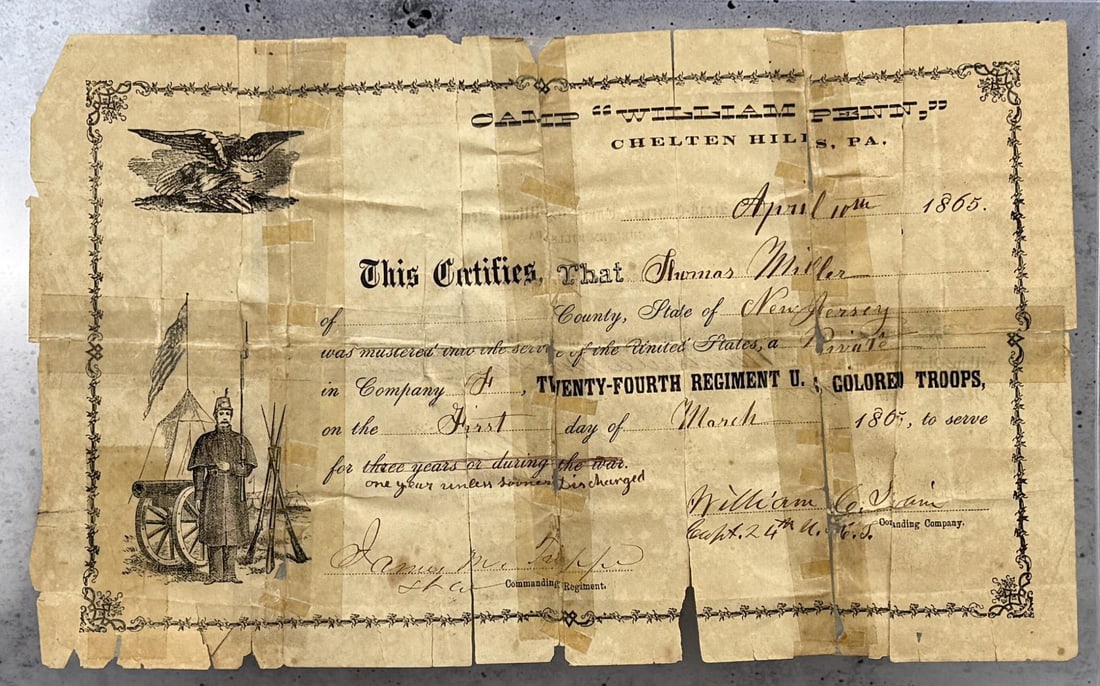 CAMP "WILLIAM PENN,"
CHELTEN HILLS, PA.
April 10th 1865.
This Certifies, That Thomas Miller
of County, State of New Jersey
was mustered into the service of the United States, a Private
in Company F, TWENTY-FOURTH REGIMENT U. S. COLORED TROOPS,
on the First day of March 1865, to serve
for three years or during the war.
one year unless sooner Discharged
William C.
Capt. 24th U.S.C.T.
Commanding Company.
James M. Trippe
Commanding Regiment.